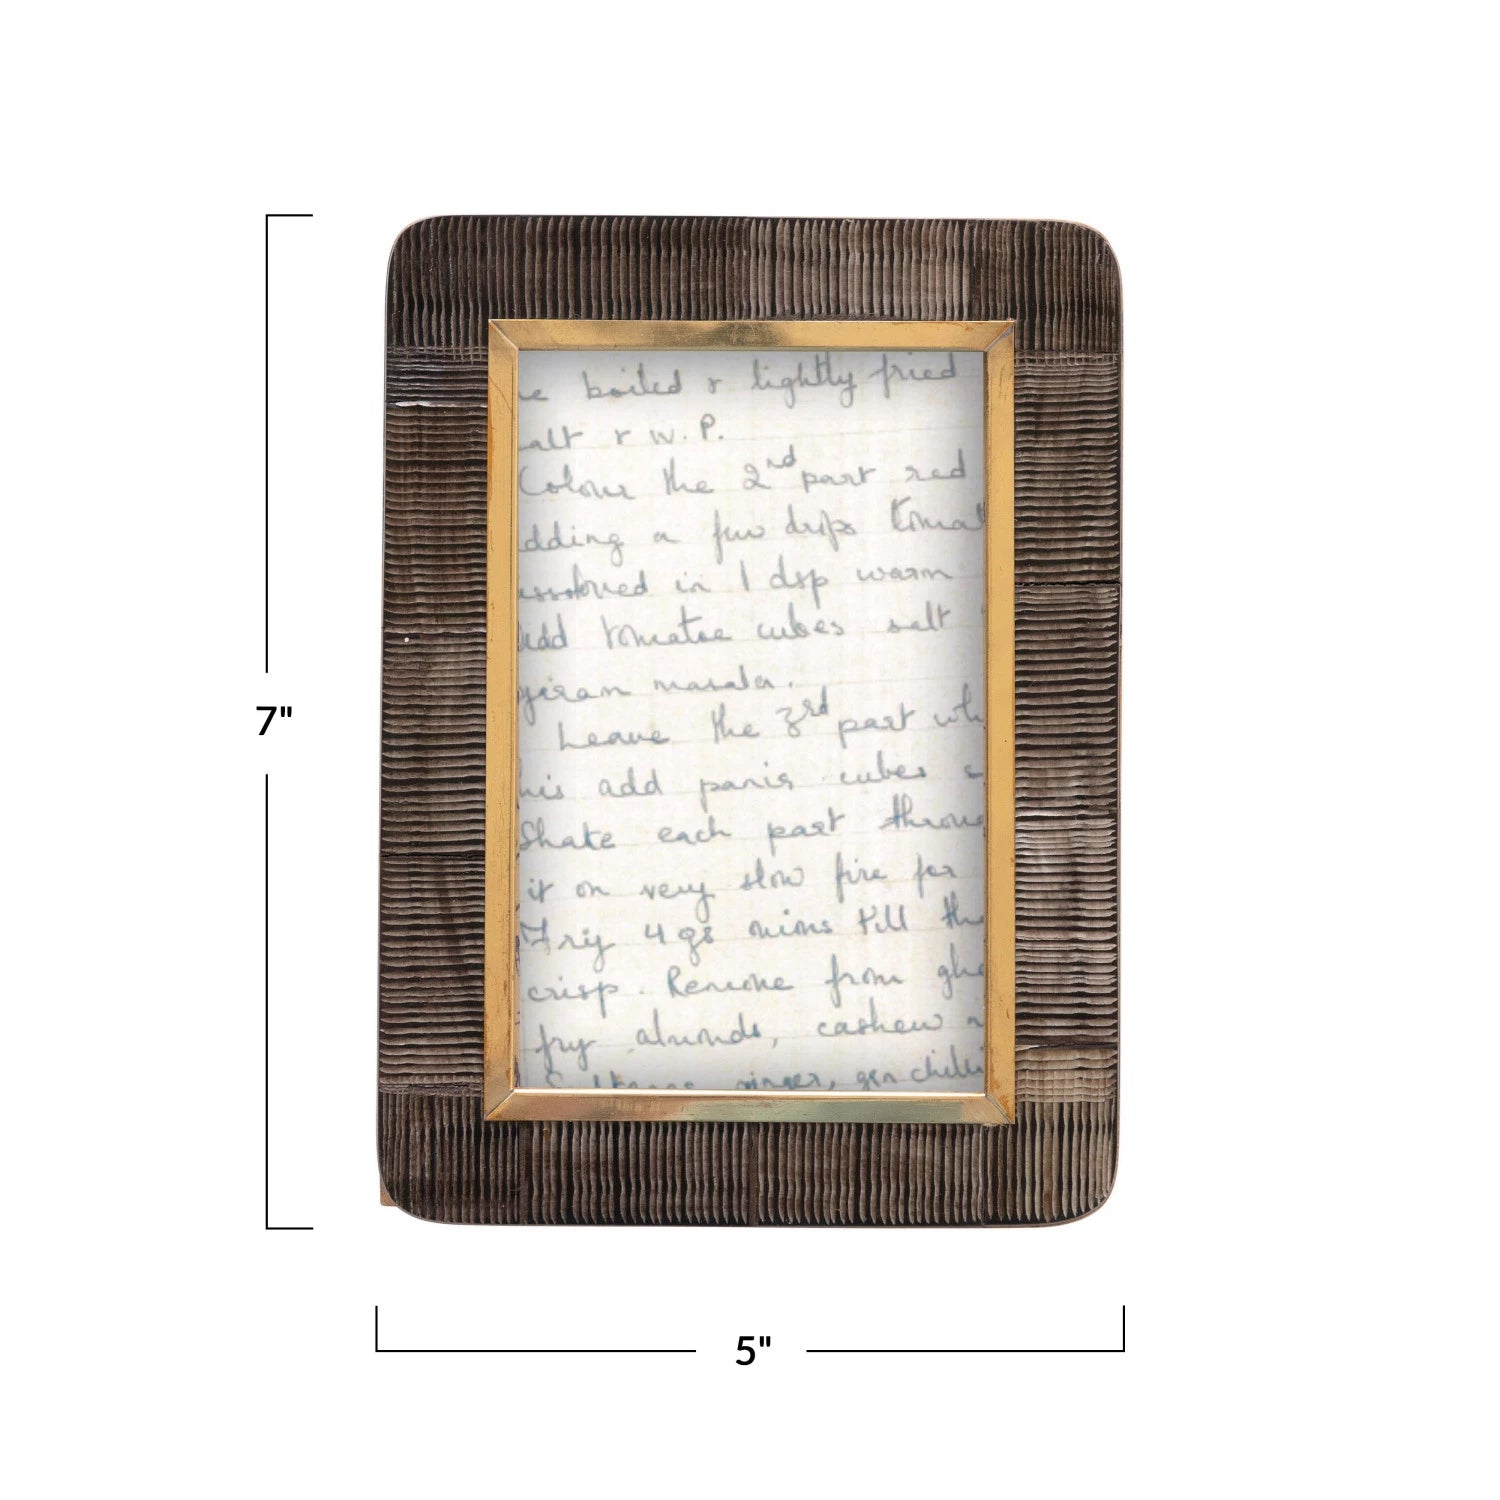 boiled & lightly fried
alt & W.P.
Colour the 2nd part red
dding a few drops tomat
in 1 dsp warm
Add tomatoe cubes salt
giram masala.
Leave the 3rd part wh
his add panir cubes
Shake each part throug
it on very slow fire for
Fry 4 gs mins till the
crisp. Remove from ghe
fry almonds, cashew n
ginger, grn chilli
7"
5"